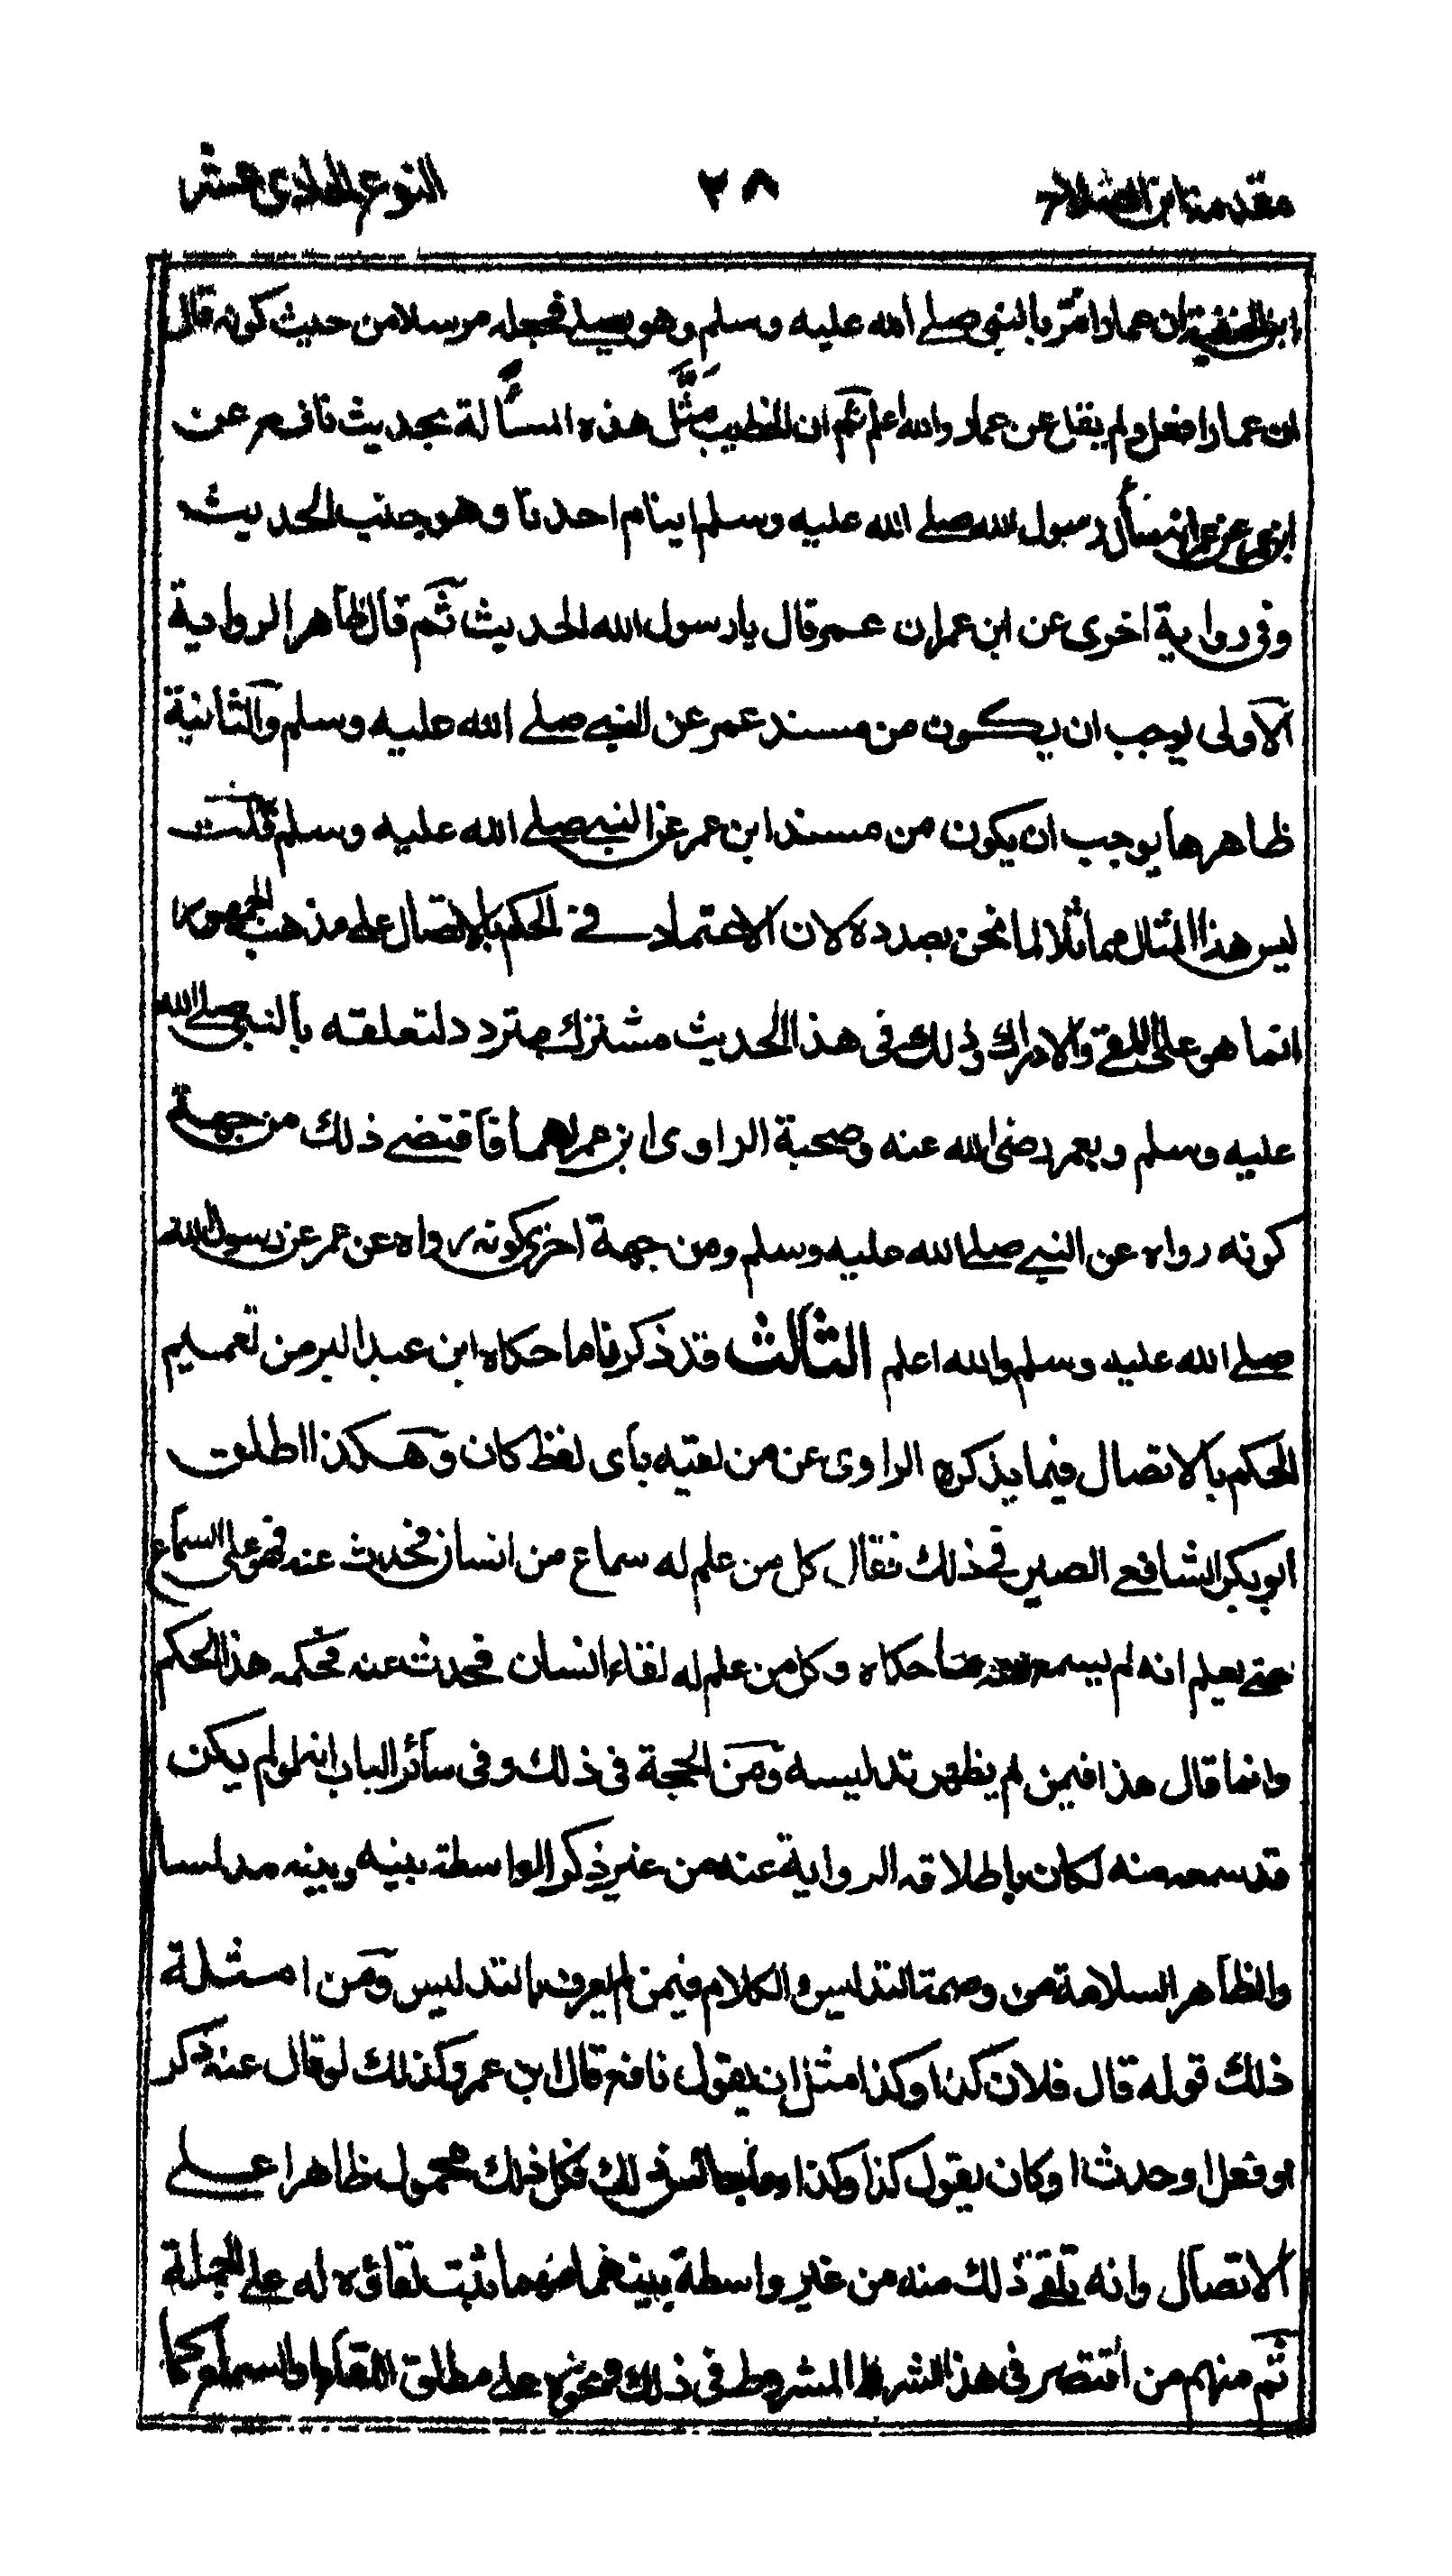 مقدمة ابن الصلاح ٢٨ النوع الحادى عشر
ابن الحنفية ان عمارا مر بالنبى صلى الله عليه وسلم وهو يصلى فجعله مرسلا من حيث كونه قال
ان عمارا فعل ولم يقل عن عمار والله اعلم ثم ان الخطيب مثل هذه المسألة بحديث نافع عن
ابن عمر عن عمر انه سأل رسول الله صلى الله عليه وسلم اينام احدنا وهو جنب الحديث
وفى رواية اخرى عن ابن عمر ان عمر قال يا رسول الله الحديث ثم قال ظاهر الرواية
الاولى يوجب ان يكون من مسند عمر عن النبى صلى الله عليه وسلم والثانية
ظاهرها يوجب ان يكون من مسند ابن عمر عن النبى صلى الله عليه وسلم قلت
ليس هذا المثال مماثلا لما نحن بصدده لان الاعتماد فى الحكم بالاتصال على مذهب الجمهور
انما هو على اللقى والادراك وذلك فى هذا الحديث مشترك متردد لتعلقه بالنبى صلى الله
عليه وسلم وبعمر رضى الله عنه وصحبة الراوى ابن عمر لهما فاقتضى ذلك من جهة
كونه رواه عن النبى صلى الله عليه وسلم ومن جهة اخرى كونه رواه عن عمر عن رسول الله
صلى الله عليه وسلم والله اعلم الثالث قد ذكرنا ما حكاه ابن عبد البر من تعميم
الحكم بالاتصال فيما يذكره الراوى عن من لقيه باى لفظ كان وهكذا اطلق
ابو بكر الشافعى الصيرفى ذلك فقال كل من علم له سماع من انسان فحدث عنه فهو على السماع
حتى يعلم انه لم يسمع منه ما حكاه وكل من علم له لقاء انسان فحدث عنه فحكمه هذا الحكم
وانما قال هذا فيمن لم يظهر تدليسه ومن الحجة فى ذلك وفى سائر الباب انه لو لم يكن
قد سمعه منه لكان باطلاقه الرواية عنه من غير ذكر الواسطة بينه وبينه مدلسا
والظاهر السلامة من وصمة التدليس والكلام فيمن لم يعرف بالتدليس ومن امثلة
ذلك قوله قال فلان كذا وكذا مثل ان يقول نافع قال ابن عمر وكذلك لو قال عنه ذكر
او فعل او حدث او كان يقول كذا وكذا وما جانس ذلك فكل ذلك محمول ظاهرا على
الاتصال وانه تلقى ذلك منه من غير واسطة بينهما مهما ثبت لقاؤه له على الجملة
ثم منهم من اقتصر فى هذا الشرط المشروط فى ذلك ونحوه على مطلق اللقاء او السماع كما